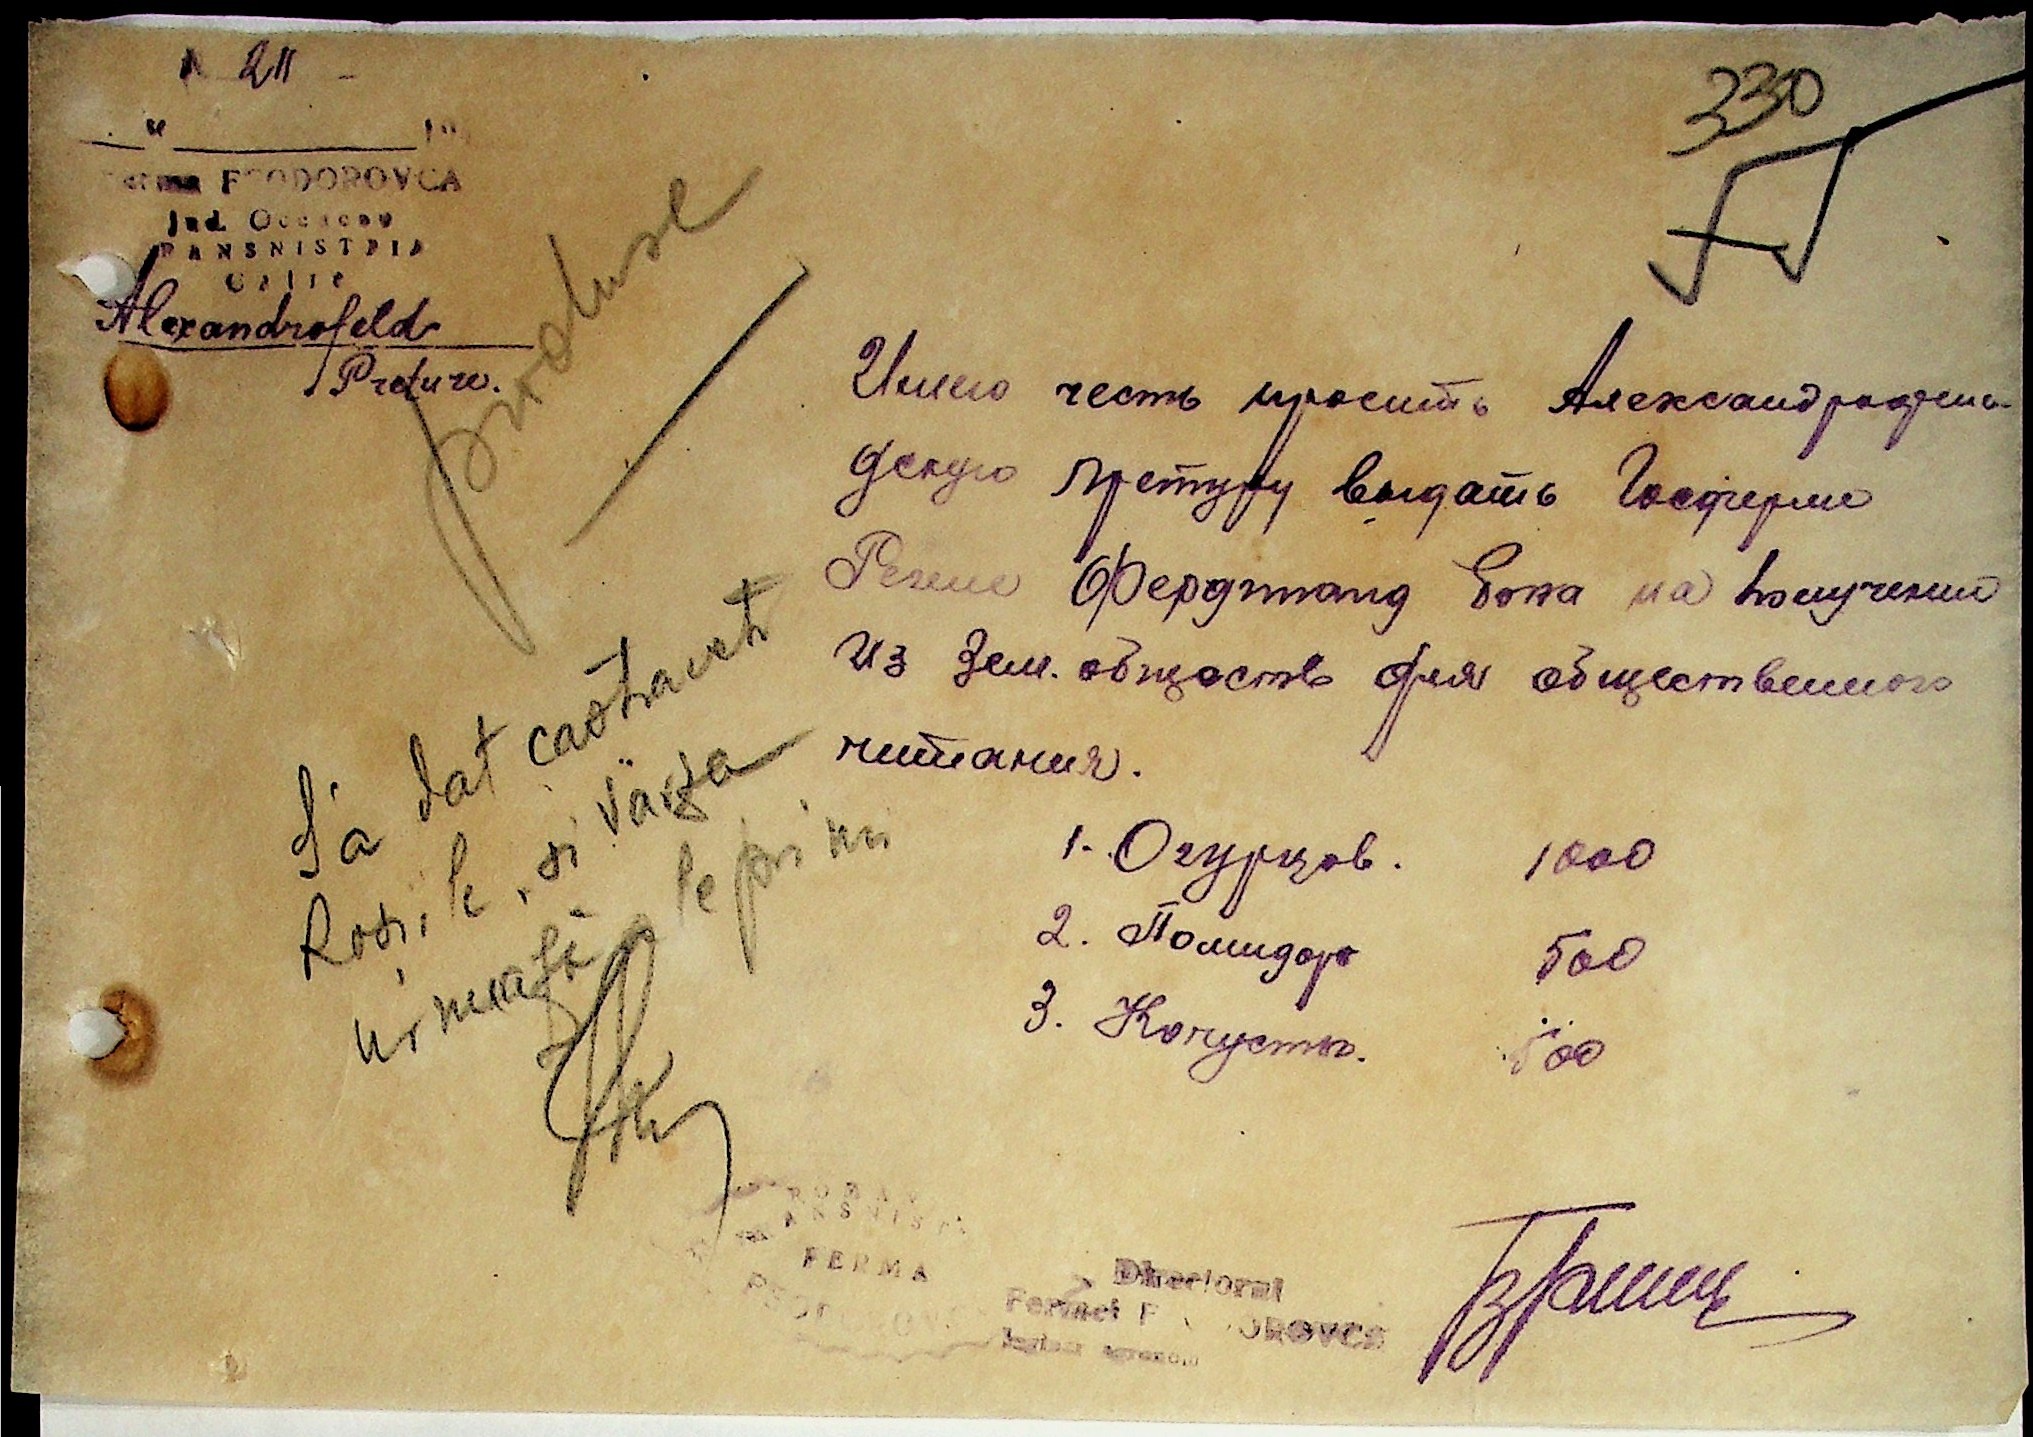 № 211
FEODOROVCA
Jud. Oceacov
TRANSNISTRIA
Catre
Alexandrofeld
Preture.
330
produse
Имею честь просить Александрофель-
дскую претуру выдать Госферме
Регеле Фердинанд бона на получение
из Зем. обществ для общественного
питания.
1. Огурцов. 1000
2. Помидор 500
3. Капусты. 500
S'a dat castraveti
Rosii le, si varza
urmează a le primi
FERMA
Directorul
Fermei F OROVCA
Inginer agronom